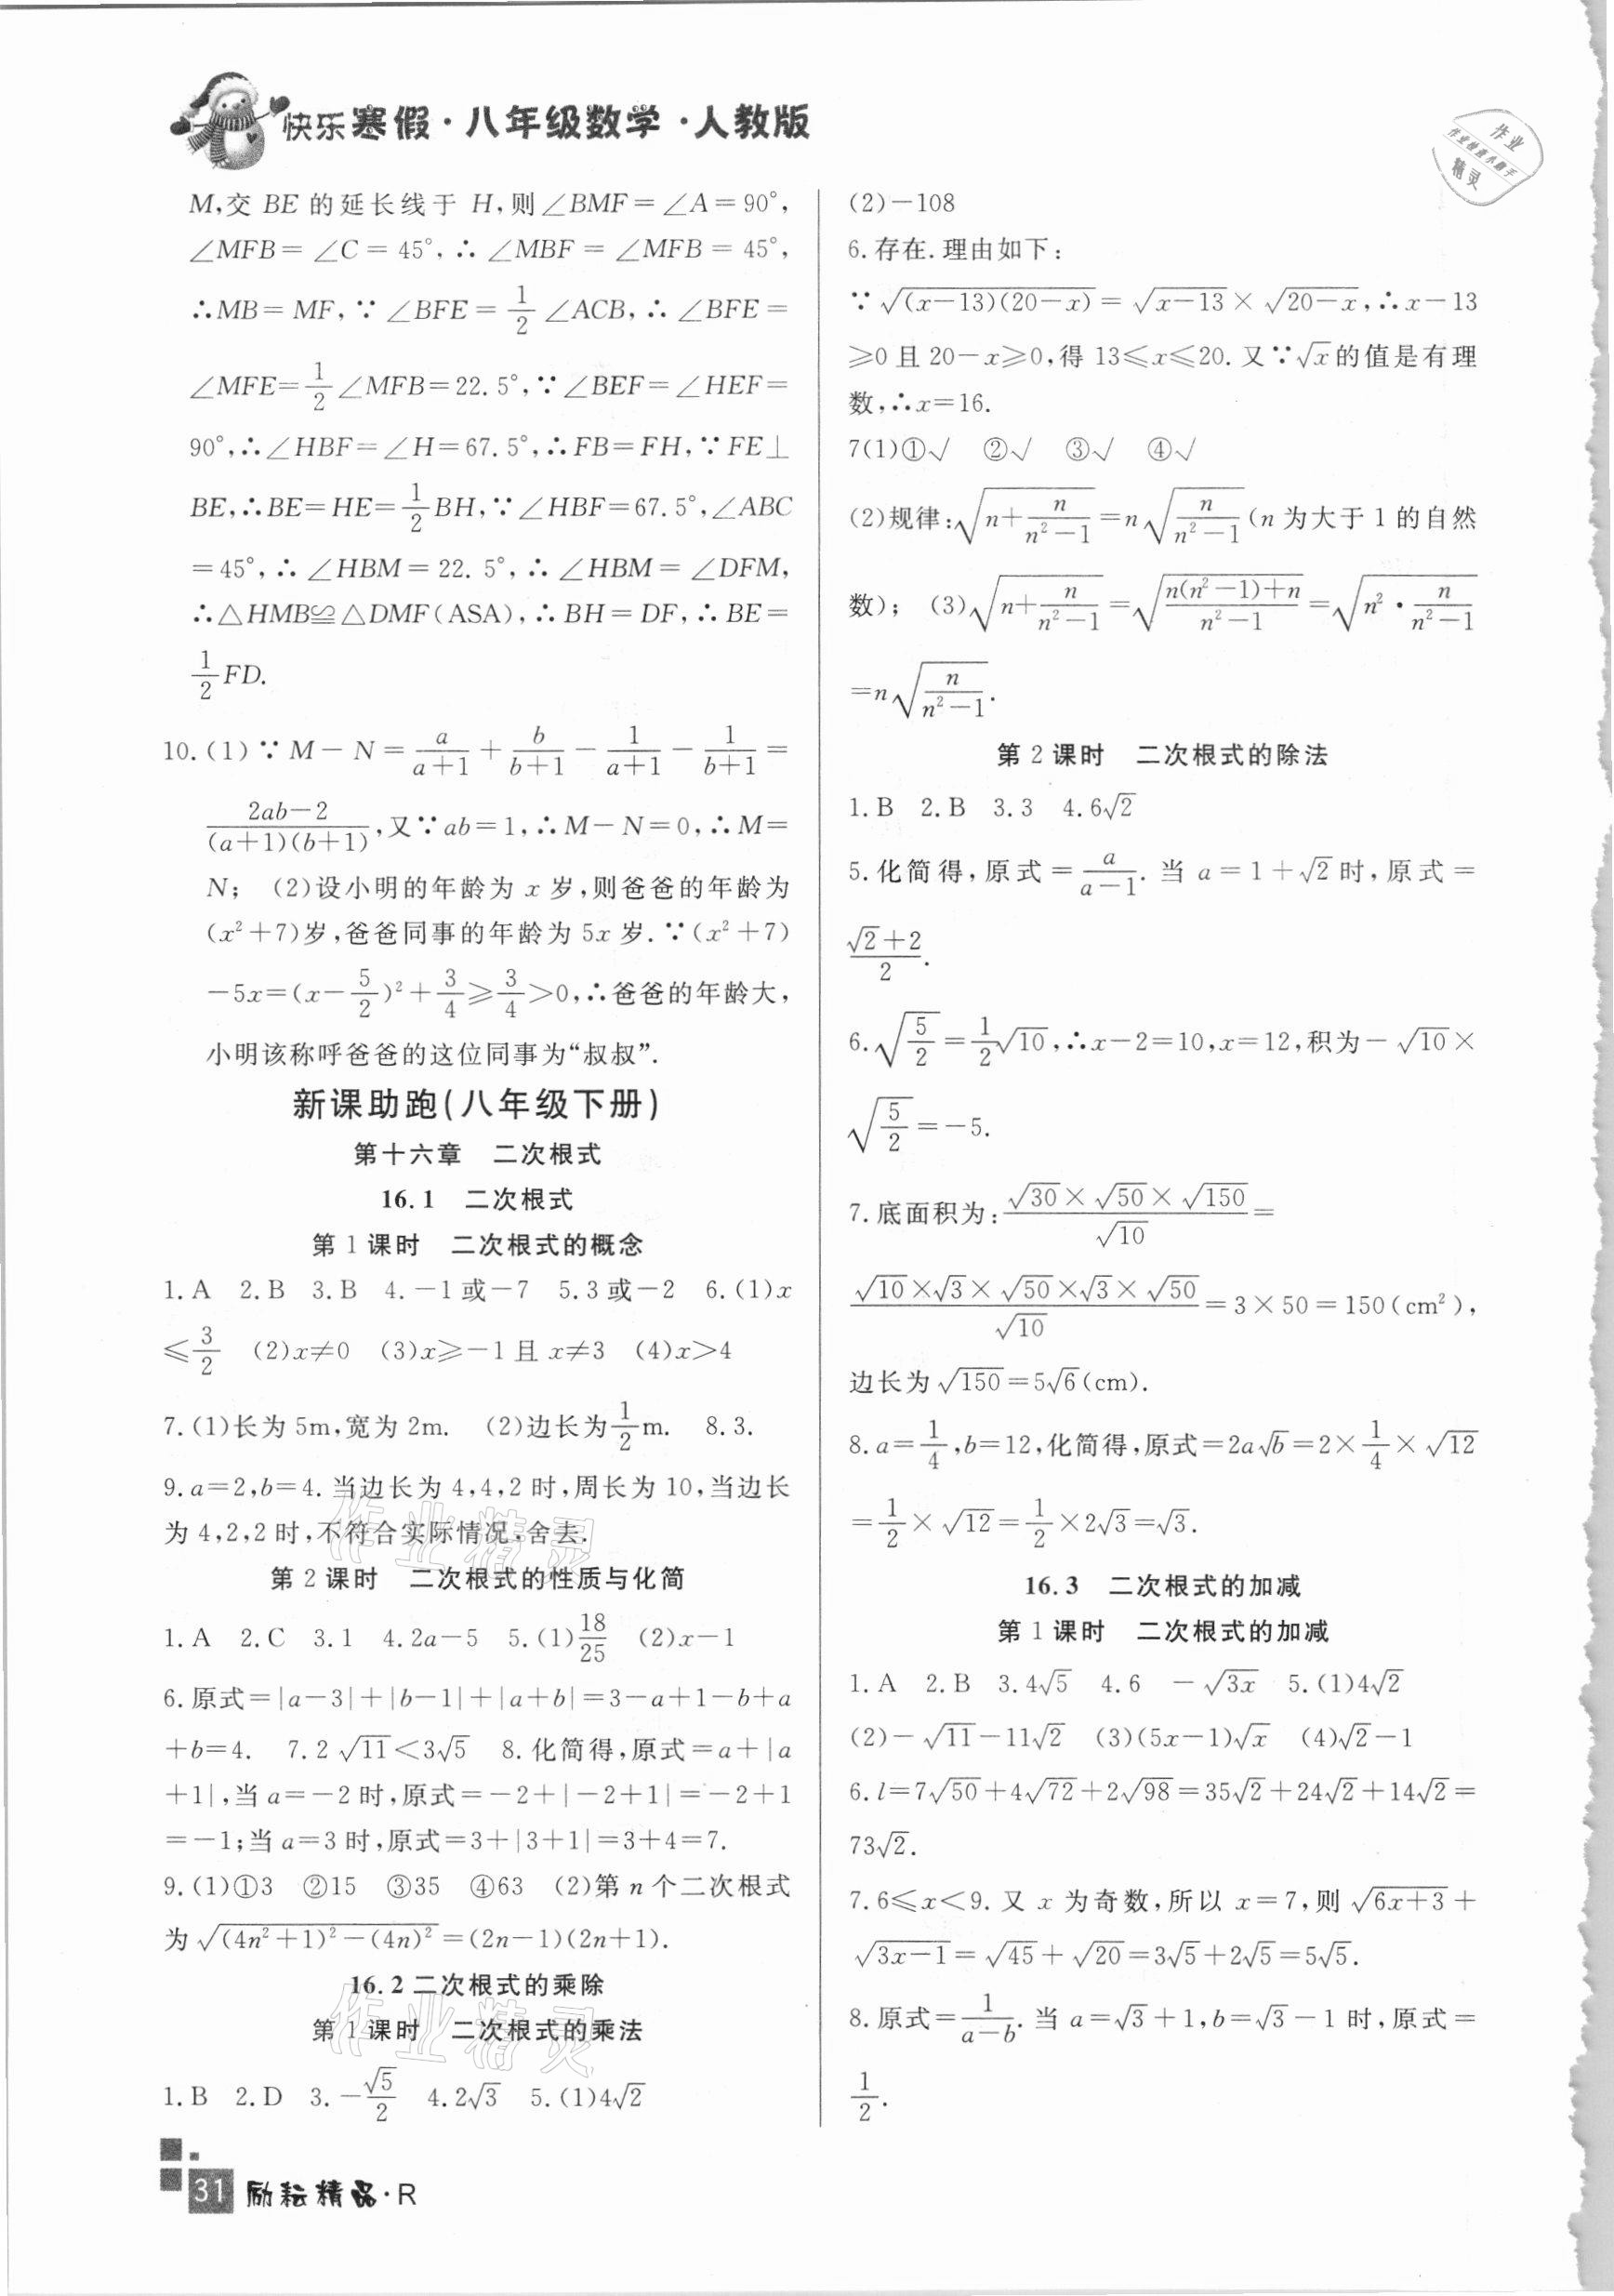 快乐寒假·八年级数学·人教版
M,交 BE 的延长线于 H,则∠BMF=∠A=90°,
∠MFB=∠C=45°,∴∠MBF=∠MFB=45°,
∴MB=MF,∵∠BFE=1/2∠ACB,∴∠BFE=
∠MFE=1/2∠MFB=22.5°,∵∠BEF=∠HEF=
90°,∴∠HBF=∠H=67.5°,∴FB=FH,∵FE⊥
BE,∴BE=HE=1/2BH,∵∠HBF=67.5°,∠ABC
=45°,∴∠HBM=22.5°,∴∠HBM=∠DFM,
∴△HMB≌△DMF(ASA),∴BH=DF,∴BE=
1/2FD.
10.(1)∵M-N=a/(a+1)+b/(b+1)-1/(a+1)-1/(b+1)=
(2ab-2)/((a+1)(b+1)),又∵ab=1,∴M-N=0,∴M=
N; (2)设小明的年龄为 x 岁,则爸爸的年龄为
(x²+7)岁,爸爸同事的年龄为 5x 岁.∵(x²+7)
-5x=(x-5/2)²+3/4≥3/4>0,∴爸爸的年龄大,
小明该称呼爸爸的这位同事为“叔叔”.
新课助跑(八年级下册)
第十六章 二次根式
16.1 二次根式
第 1 课时 二次根式的概念
1.A 2.B 3.B 4.-1或-7 5.3或-2 6.(1)x
≤3/2 (2)x≠0 (3)x≥-1且x≠3 (4)x>4
7.(1)长为5m,宽为2m. (2)边长为1/2m. 8.3.
9.a=2,b=4.当边长为4,4,2时,周长为10,当边长
为4,2,2时,不符合实际情况,舍去.
第 2 课时 二次根式的性质与化简
1.A 2.C 3.1 4.2a-5 5.(1)18/25 (2)x-1
6.原式=|a-3|+|b-1|+|a+b|=3-a+1-b+a
+b=4. 7.2√11<3√5 8.化简得,原式=a+|a
+1|,当a=-2时,原式=-2+|-2+1|=-2+1
=-1;当a=3时,原式=3+|3+1|=3+4=7.
9.(1)①3 ②15 ③35 ④63 (2)第 n 个二次根式
为√((4n²+1)²-(4n)²)=(2n-1)(2n+1).
16.2二次根式的乘除
第 1 课时 二次根式的乘法
1.B 2.D 3.-√5/2 4.2√3 5.(1)4√2
(2)-108
6.存在.理由如下:
∵√((x-13)(20-x))=√(x-13)×√(20-x),∴x-13
≥0且20-x≥0,得13≤x≤20.又∵√x的值是有理
数,∴x=16.
7(1)①√ ②√ ③√ ④√
(2)规律:√(n+n/(n²-1))=n√(n/(n²-1))(n为大于1的自然
数); (3)√(n+n/(n²-1))=√((n(n²-1)+n)/(n²-1))=√(n²·n/(n²-1))
=n√(n/(n²-1)).
第 2 课时 二次根式的除法
1.B 2.B 3.3 4.6√2
5.化简得,原式=a/(a-1).当a=1+√2时,原式=
(√2+2)/2.
6.√(5/2)=1/2√10,∴x-2=10,x=12,积为-√10×
√(5/2)=-5.
7.底面积为:(√30×√50×√150)/√10=
(√10×√3×√50×√3×√50)/√10=3×50=150(cm²),
边长为√150=5√6(cm).
8.a=1/4,b=12,化简得,原式=2a√b=2×1/4×√12
=1/2×√12=1/2×2√3=√3.
16.3 二次根式的加减
第 1 课时 二次根式的加减
1.A 2.B 3.4√5 4.6 -√(3x) 5.(1)4√2
(2)-√11-11√2 (3)(5x-1)√x (4)√2-1
6.l=7√50+4√72+2√98=35√2+24√2+14√2=
73√2.
7.6≤x<9.又 x 为奇数,所以 x=7,则√(6x+3)+
√(3x-1)=√45+√20=3√5+2√5=5√5.
8.原式=1/(a-b).当a=√3+1,b=√3-1时,原式=
1/2.
31 励耘精品·R
作业
作业快速小助手
精灵
作业精灵
作业精灵